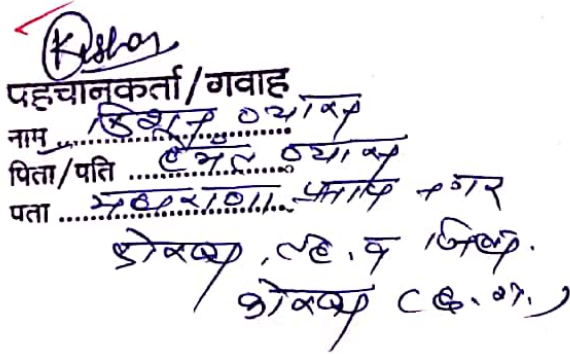 Kishor
पहचानकर्ता/गवाह
नाम किशोर व्यास
पिता/पति हेमंत व्यास
पता महाराणा प्रताप नगर
कोरबा, तह. व जिला.
कोरबा (छ. ग.)